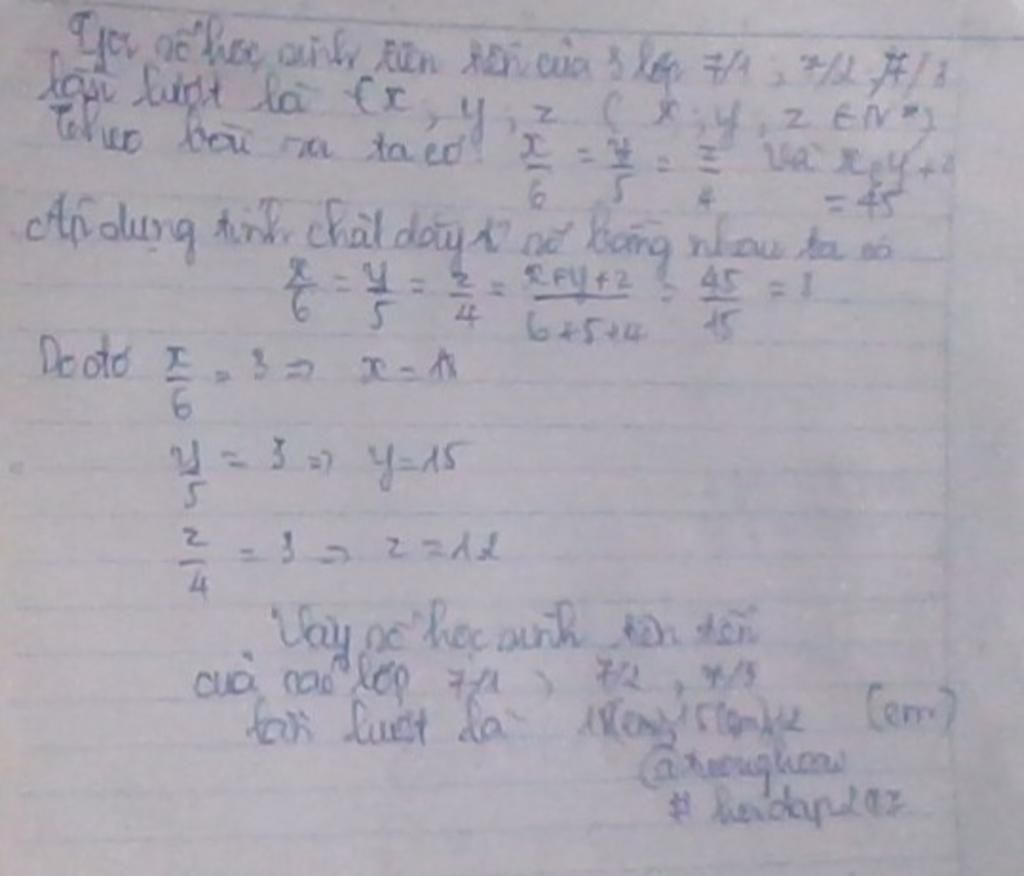 Gọi số học sinh tiên tiến của 3 lớp 7/1, 7/2, 7/3
lần lượt là (x, y, z ( x, y, z ∈ N*)
Theo bài ra ta có x/6 = y/5 = z/4 và x+y+z
= 45
Áp dụng tính chất dãy tỉ số bằng nhau ta có
x/6 = y/5 = z/4 = x+y+z/6+5+4 = 45/15 = 3
Do đó x/6 = 3 => x = 18
y/5 = 3 => y = 15
z/4 = 3 => z = 12
Vậy số học sinh tiên tiến
của lớp 7/1, 7/2, 7/3
lần lượt là 18(em) 15(em) 12 (em)